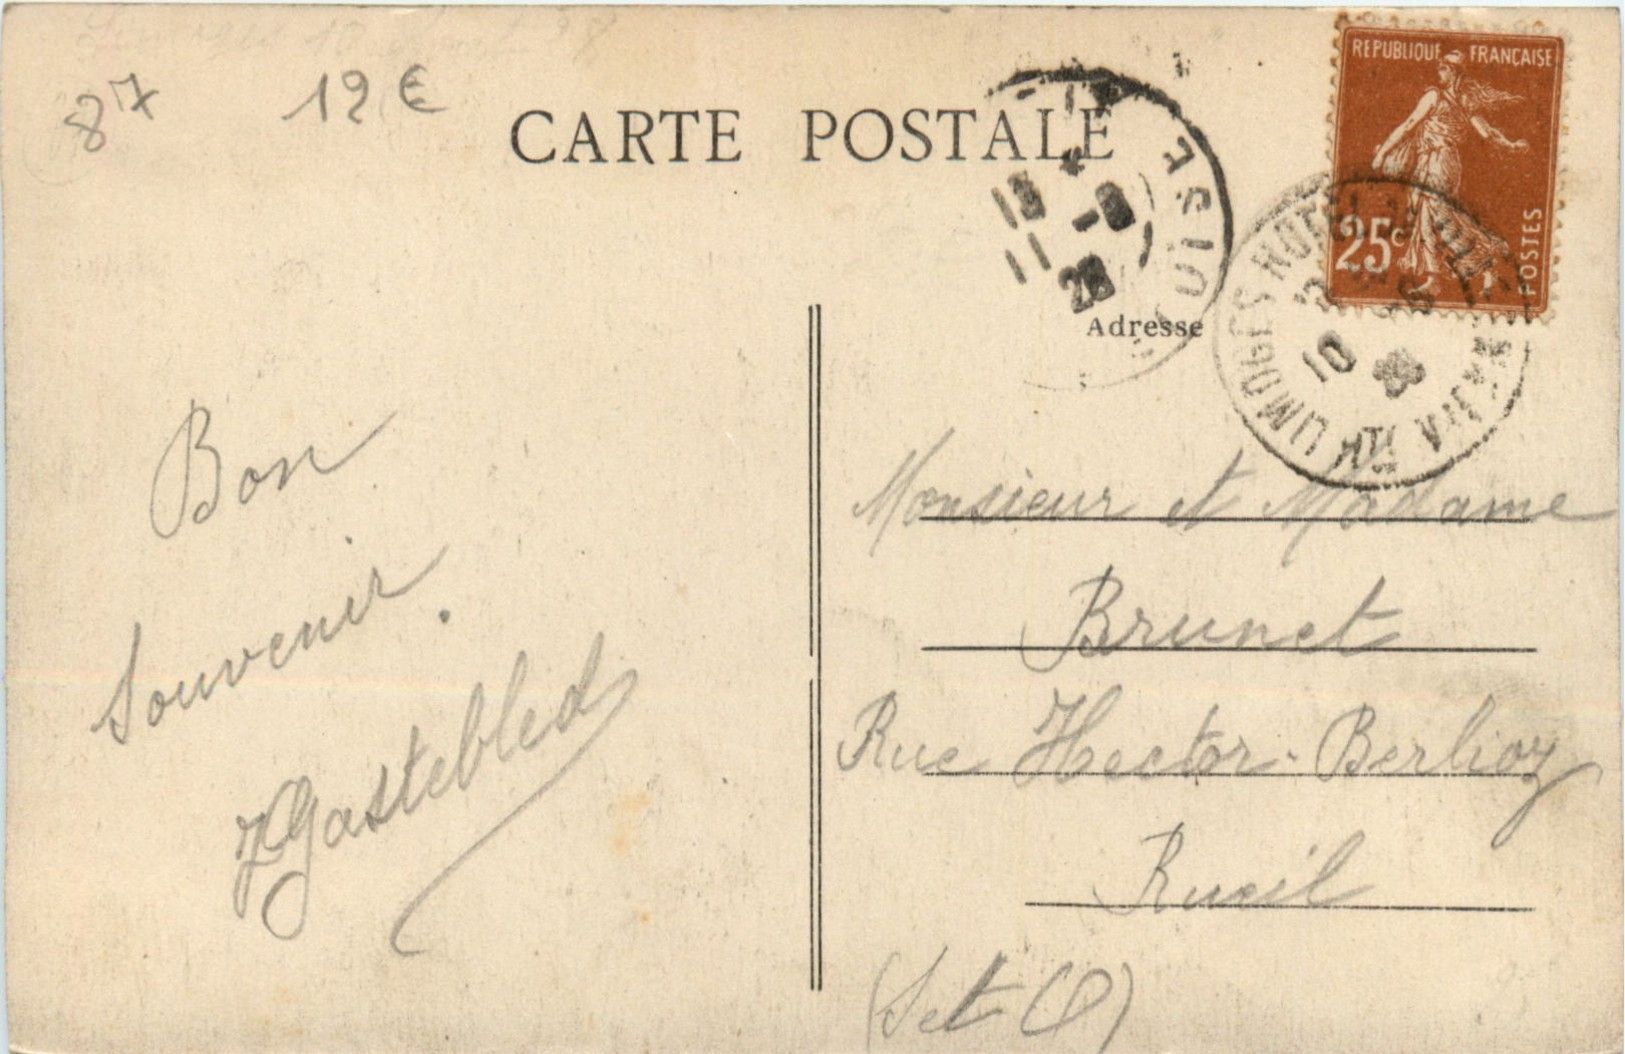 87
12 €
CARTE POSTALE
REPUBLIQUE FRANÇAISE
25c
POSTES
13 * -8
11 28
LIMOGES HOTEL DE VILLE
10
Adresse
Bon
Souvenir.
Gastebled
Monsieur et Madame
Brunet
Rue Hector-Berlioz
Rueil
(S et O)